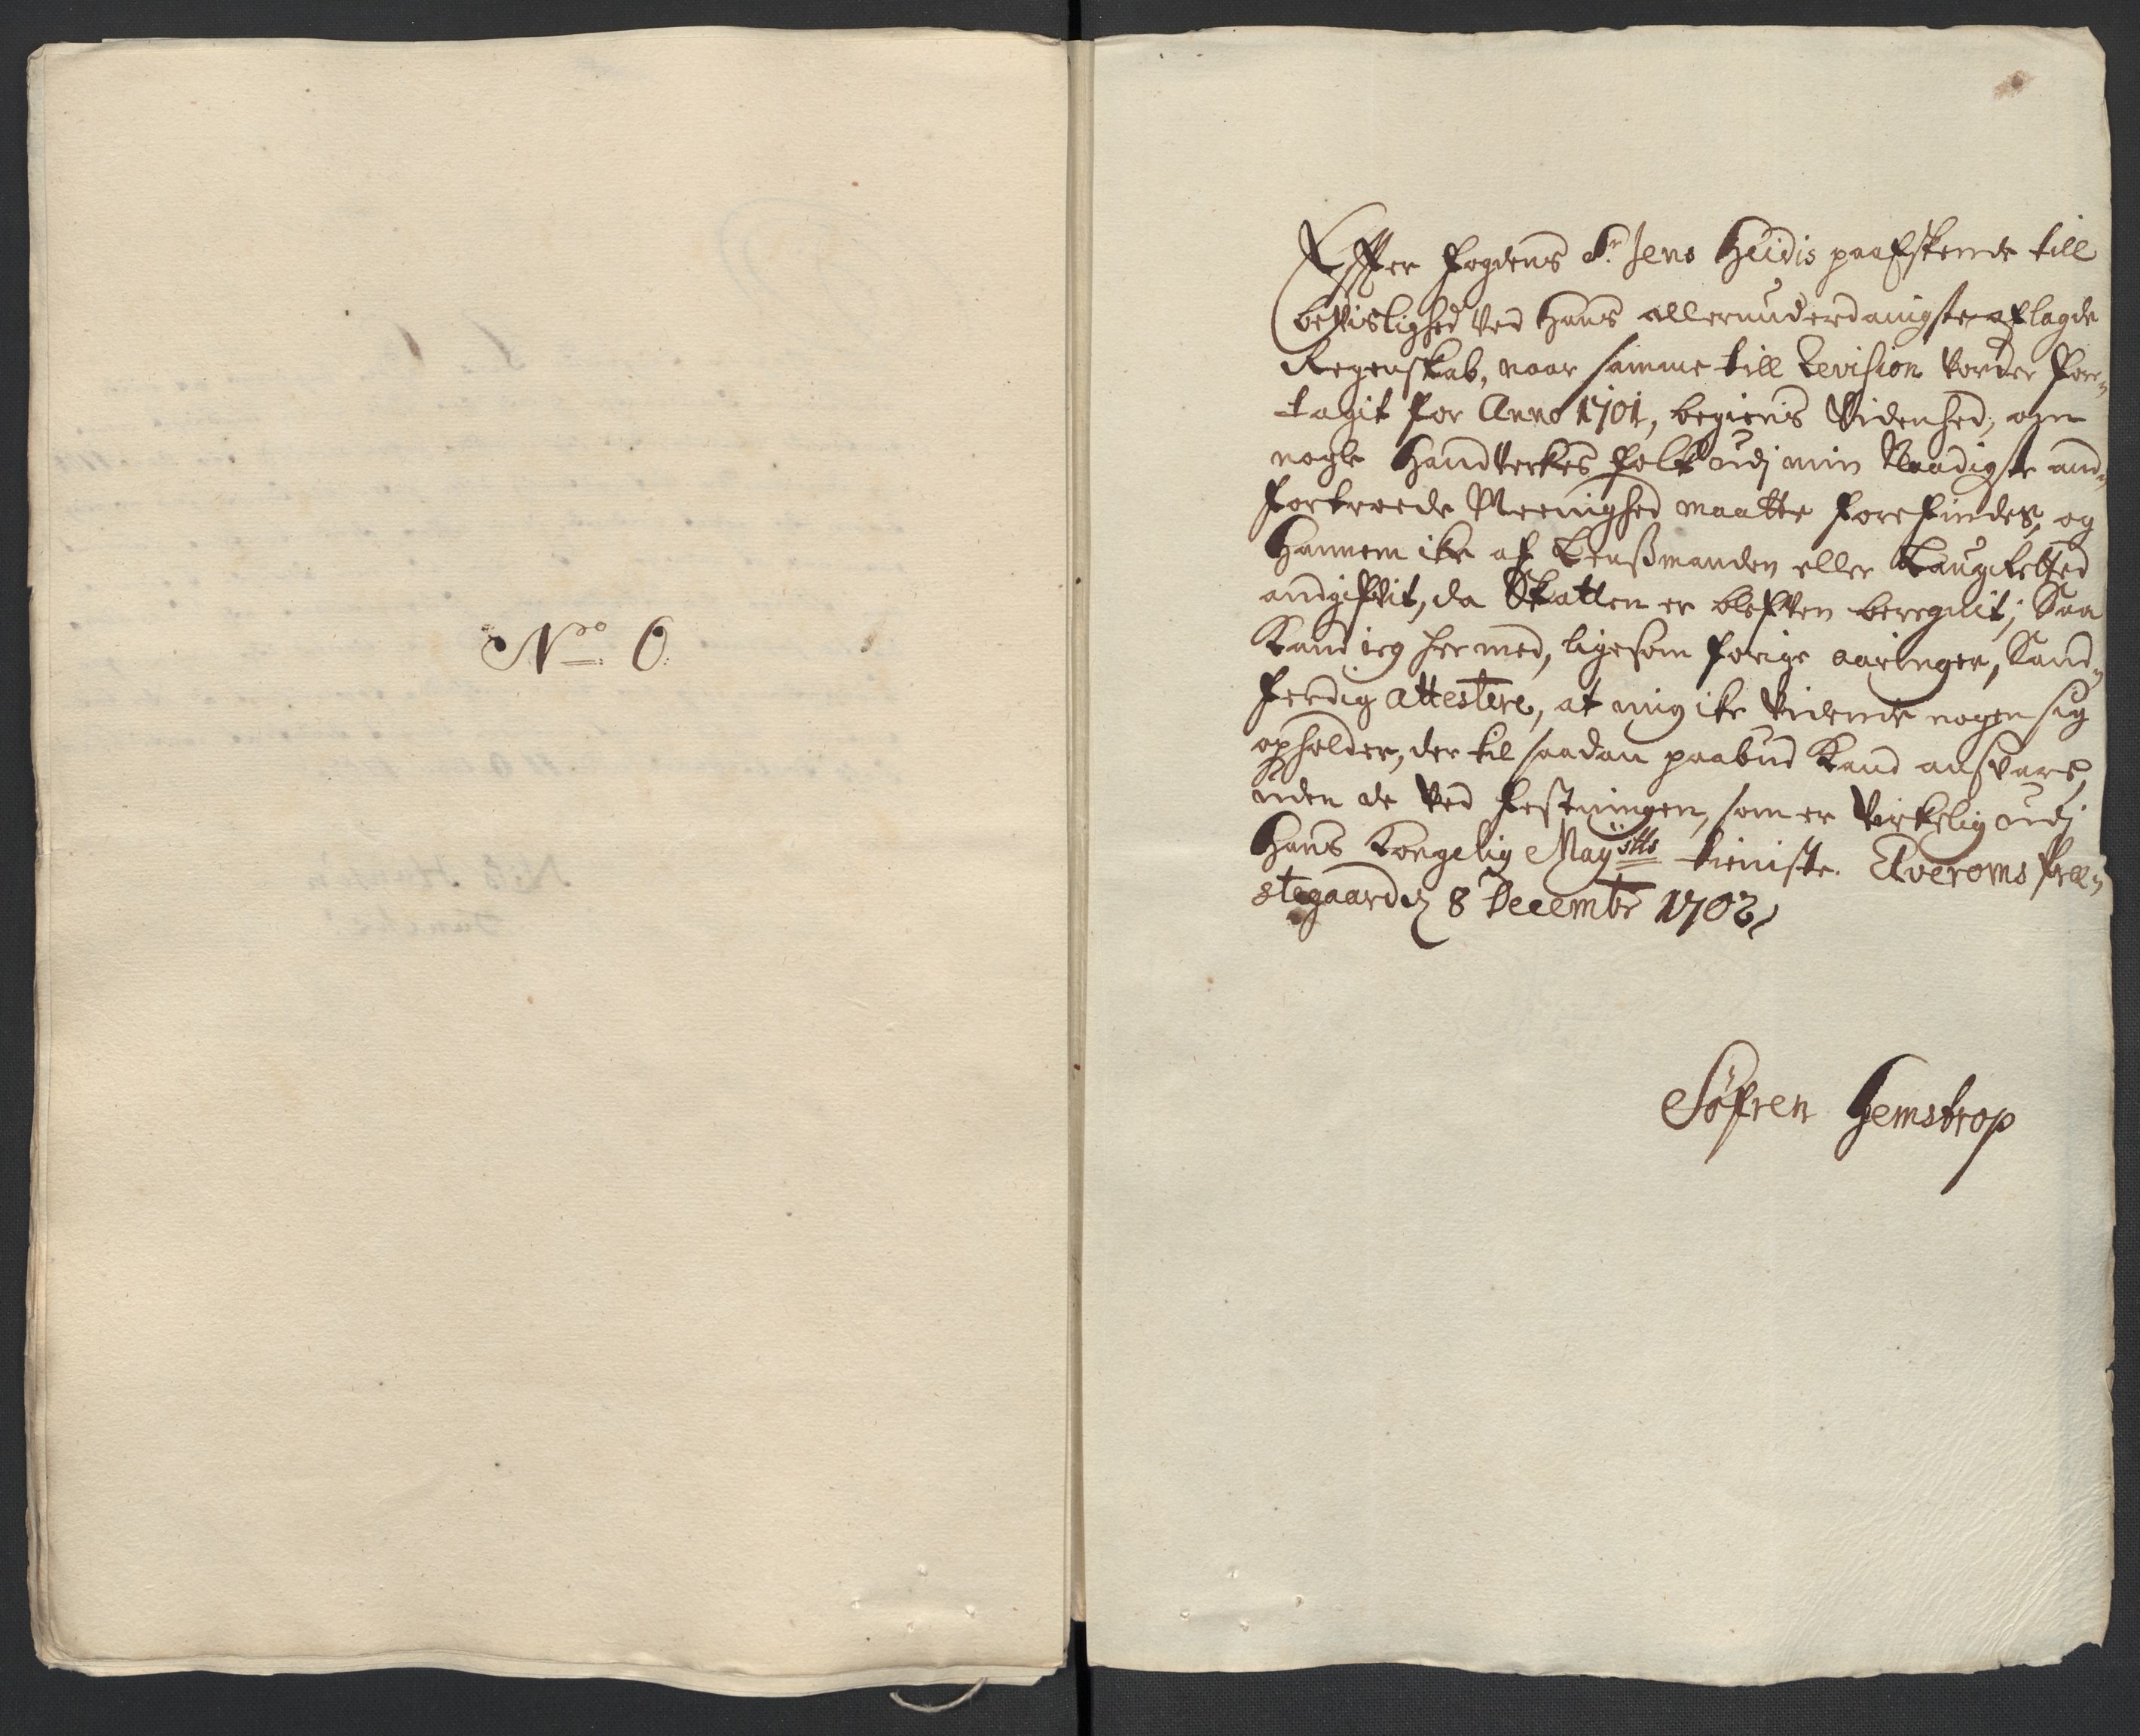 No. O.
Effter Fogdens Sr. Jens Heidis paaeskende till
bevislighed ved hans allerunderdanigste aflagde
Regenskab, naar samme till Revision vorder fore-
tagit for Anno 1701, begieris Videnhed, om
nogle handverkes folk udj min Naadigste an-
fortroede Meenighed maatte forefindes, og
hannem ike af Lensmanden eller Laugrettet
andgifvit, da Skatten er blefven beregnit; Saa
Kand ieg hermed, ligesom forige aaringer, Sand-
ferdig attestere, at mig ike vidende nogen sig
opholder, der til saadan paabud Kand ansvare,
uden de ved festningen, som er virkelig udj
Hans Kongelig Mayßtts tieniste. Elveroms Præ-
stegaard dn 8 Decembr 1702
Søfren Hemstrop